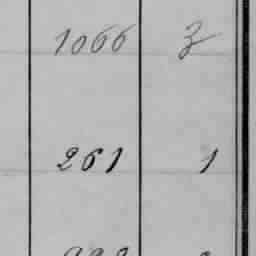 1066 3
261 1